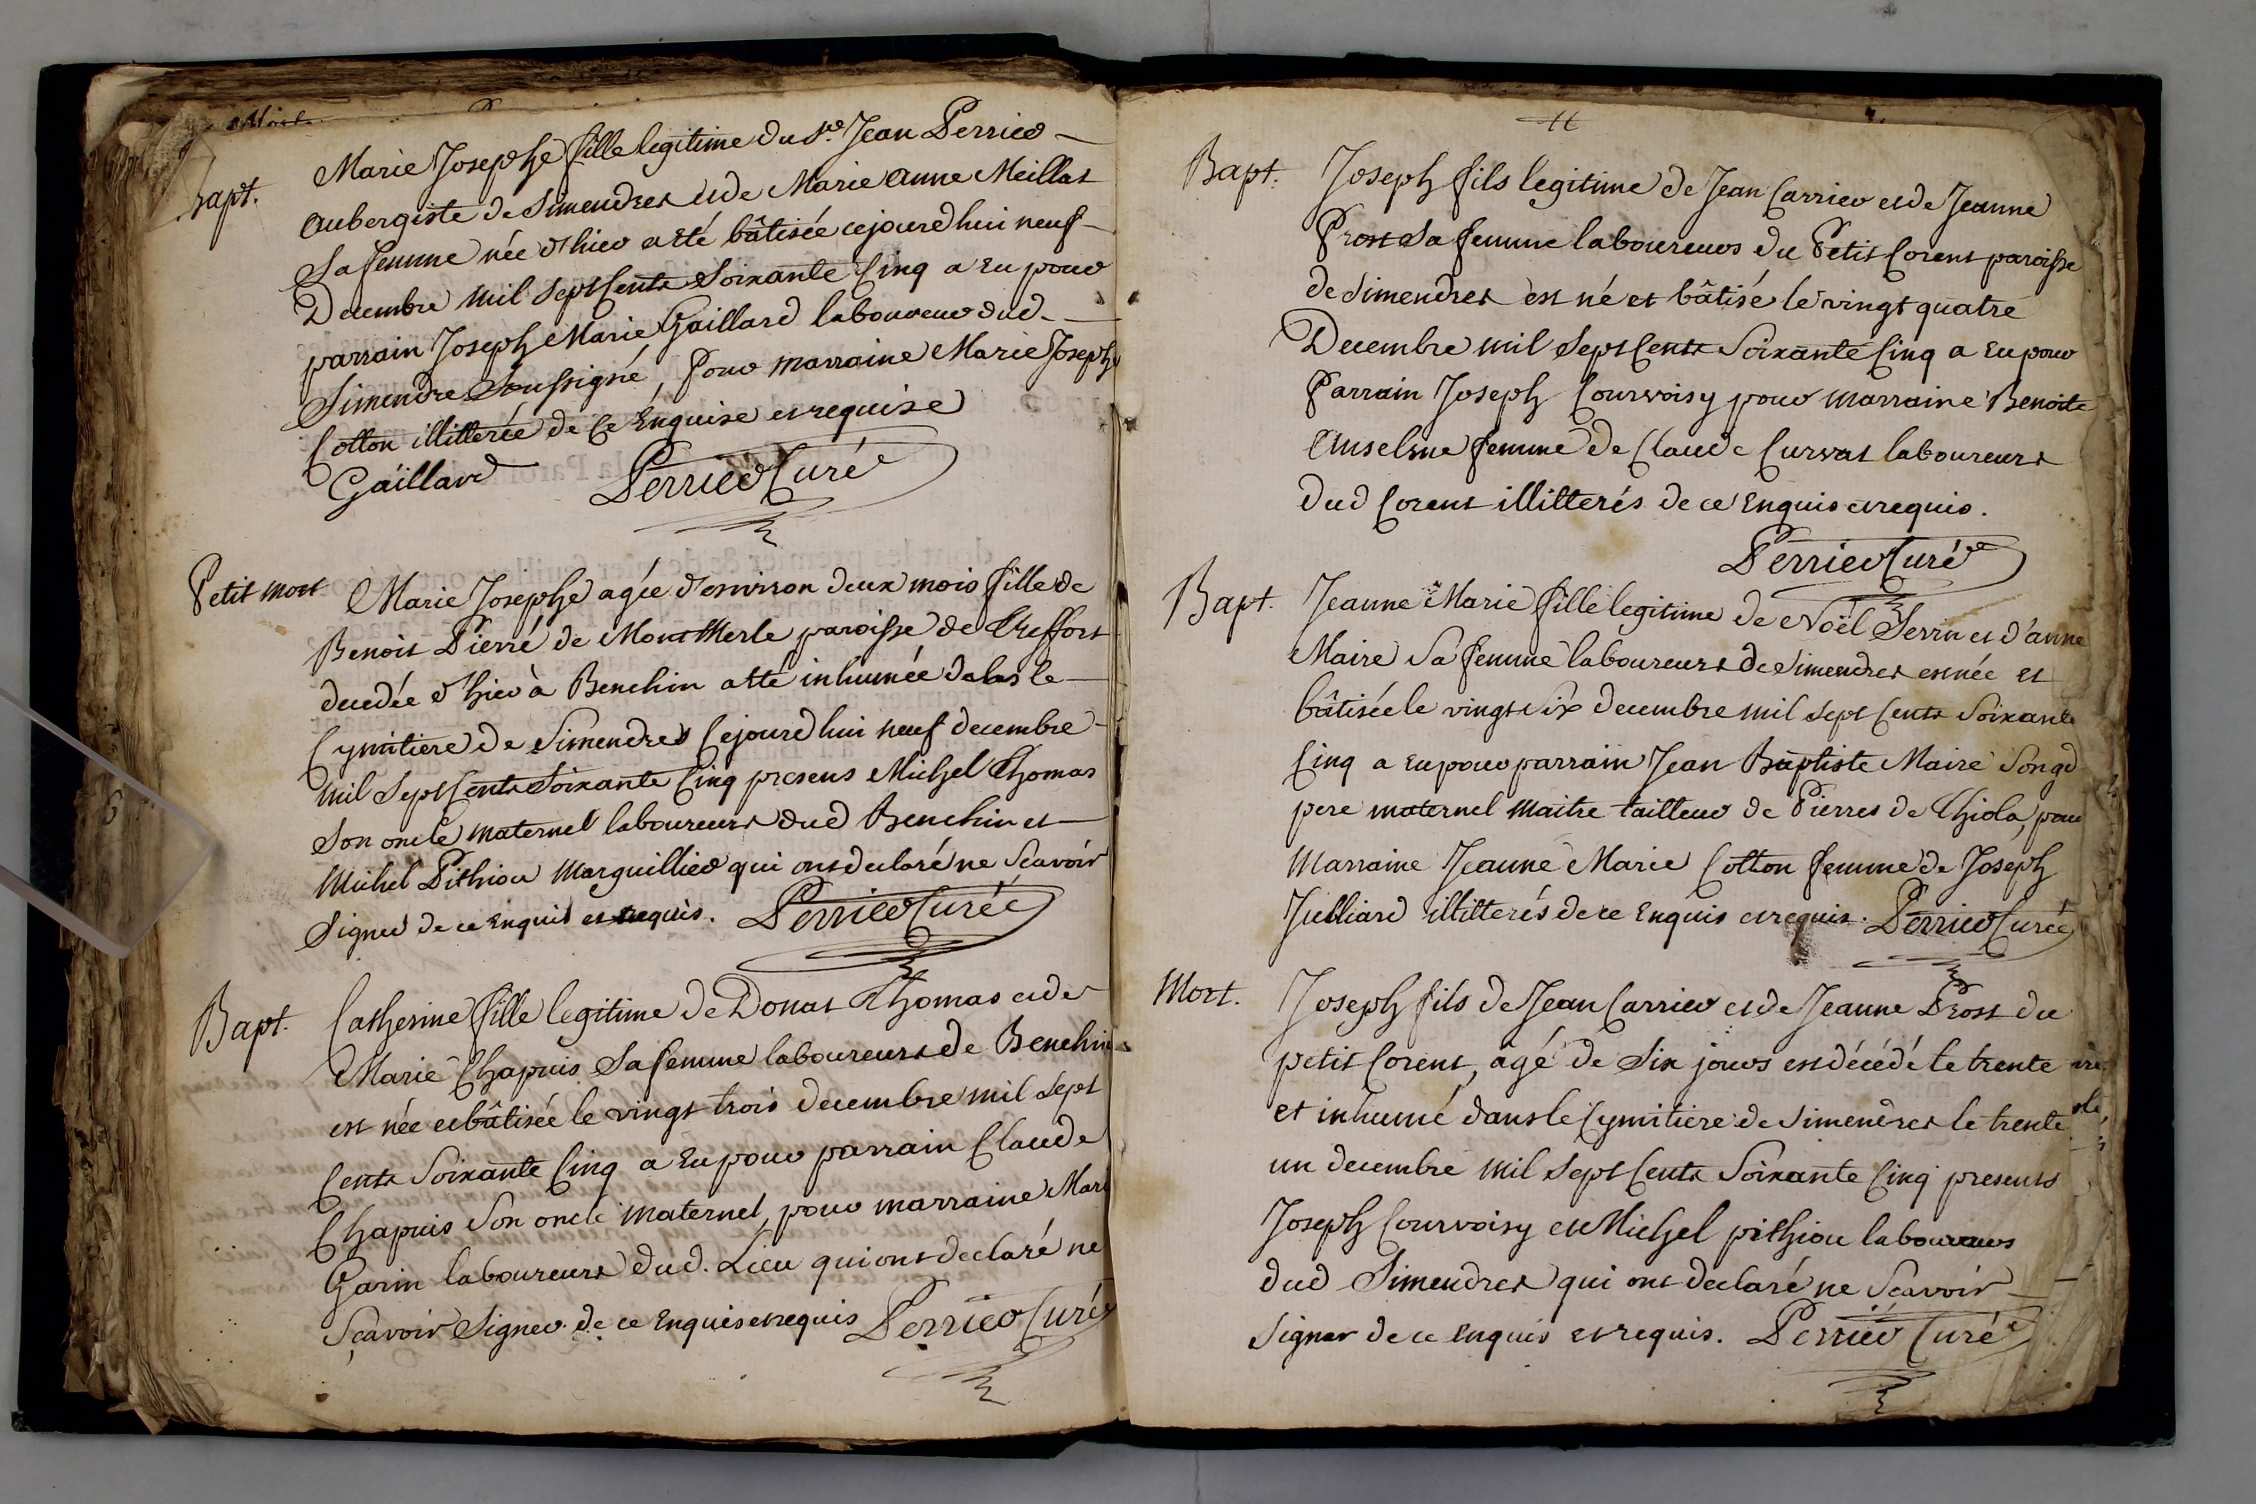 Bapt.
Marie Josephe fille legitime du Sr. Jean Perrier
aubergiste de Simendres et de Marie Anne Meillat
Sa femme née d'hier a été bâtisée cejourdhui neuf
Decembre mil sept Cents Soixante Cinq a eu pour
parrain Joseph Marie Gaillard laboureur dud.
Simendre Soussigné, pour marraine Marie Josephe
Cotton illitterée de Ce Enquise et requise
Gaillard Perrier Curé
Petit mort
Marie Josephe agée d'environ deux mois fille de
Benoit Pierré de MontMerle paroisse de Treffort
decedée d'hier à Benchin a êté inhumée dans le
Cymitiere de Simendres Cejourdhui neuf decembre
mil Sept Cents Soixante Cinq presens Michel Thomas
Son oncle maternel laboureurs dud Benchin et
Michel Pithiou Marguillier qui ont declaré ne Scavoir
Signer de ce enquis et requis. Perrier Curé
Bapt.
Catherine fille legitime de Donat Thomas et de
Marie Chapuis Sa femme laboureurs de Benchin
est née et bâtisée le vingt trois decembre mil Sept
Cents Soixante Cinq a eu pour parrain Claude
Chapuis Son oncle maternel, pour marraine Marie
Garin laboureurs dud. Lieu qui ont declaré ne
Sçavoir Signer de ce enquis et requis Perrier Curé
Bapt.
Joseph fils legitime de Jean Carrier et de Jeanne
Prost Sa femme laboureurs du Petit Corent paroisse
de Simendres est né et bâtisé le vingt quatre
Decembre mil Sept Cents Soixante Cinq a eu pour
Parrain Joseph Courvoisy pour marraine Benoite
Anselme femme de Claude Curvat laboureurs
dud Corent illitterés de ce Enquis et requis.
Perrier Curé
Bapt.
Jeanne Marie fille legitime de Noël Serrin et d'anne
Maire Sa femme laboureurs de Simendres est née et
bâtisée le vingt Six decembre mil Sept Cents Soixante
Cinq a eu pour parrain Jean Baptiste Maire Son gd
pere maternel maitre tailleur de Pierres de Chiola, pour
Marraine Jeanne Marie Cotton femme de Joseph
Julliard illitterés de ce Enquis et requis. Perrier Curé
Mort.
Joseph fils de Jean Carrier et de Jeanne Prost du
petit Corent, âgé de Six jours est décédé le trente
et inhumé dans le Cymitiere de Simendres le trente
un decembre mil Sept Cents Soixante Cinq presents
Joseph Courvoisy et Michel pithiou laboureurs
dud Simendres qui ont declaré ne Scavoir
Signer de ce enquis et requis. Perrier Curé